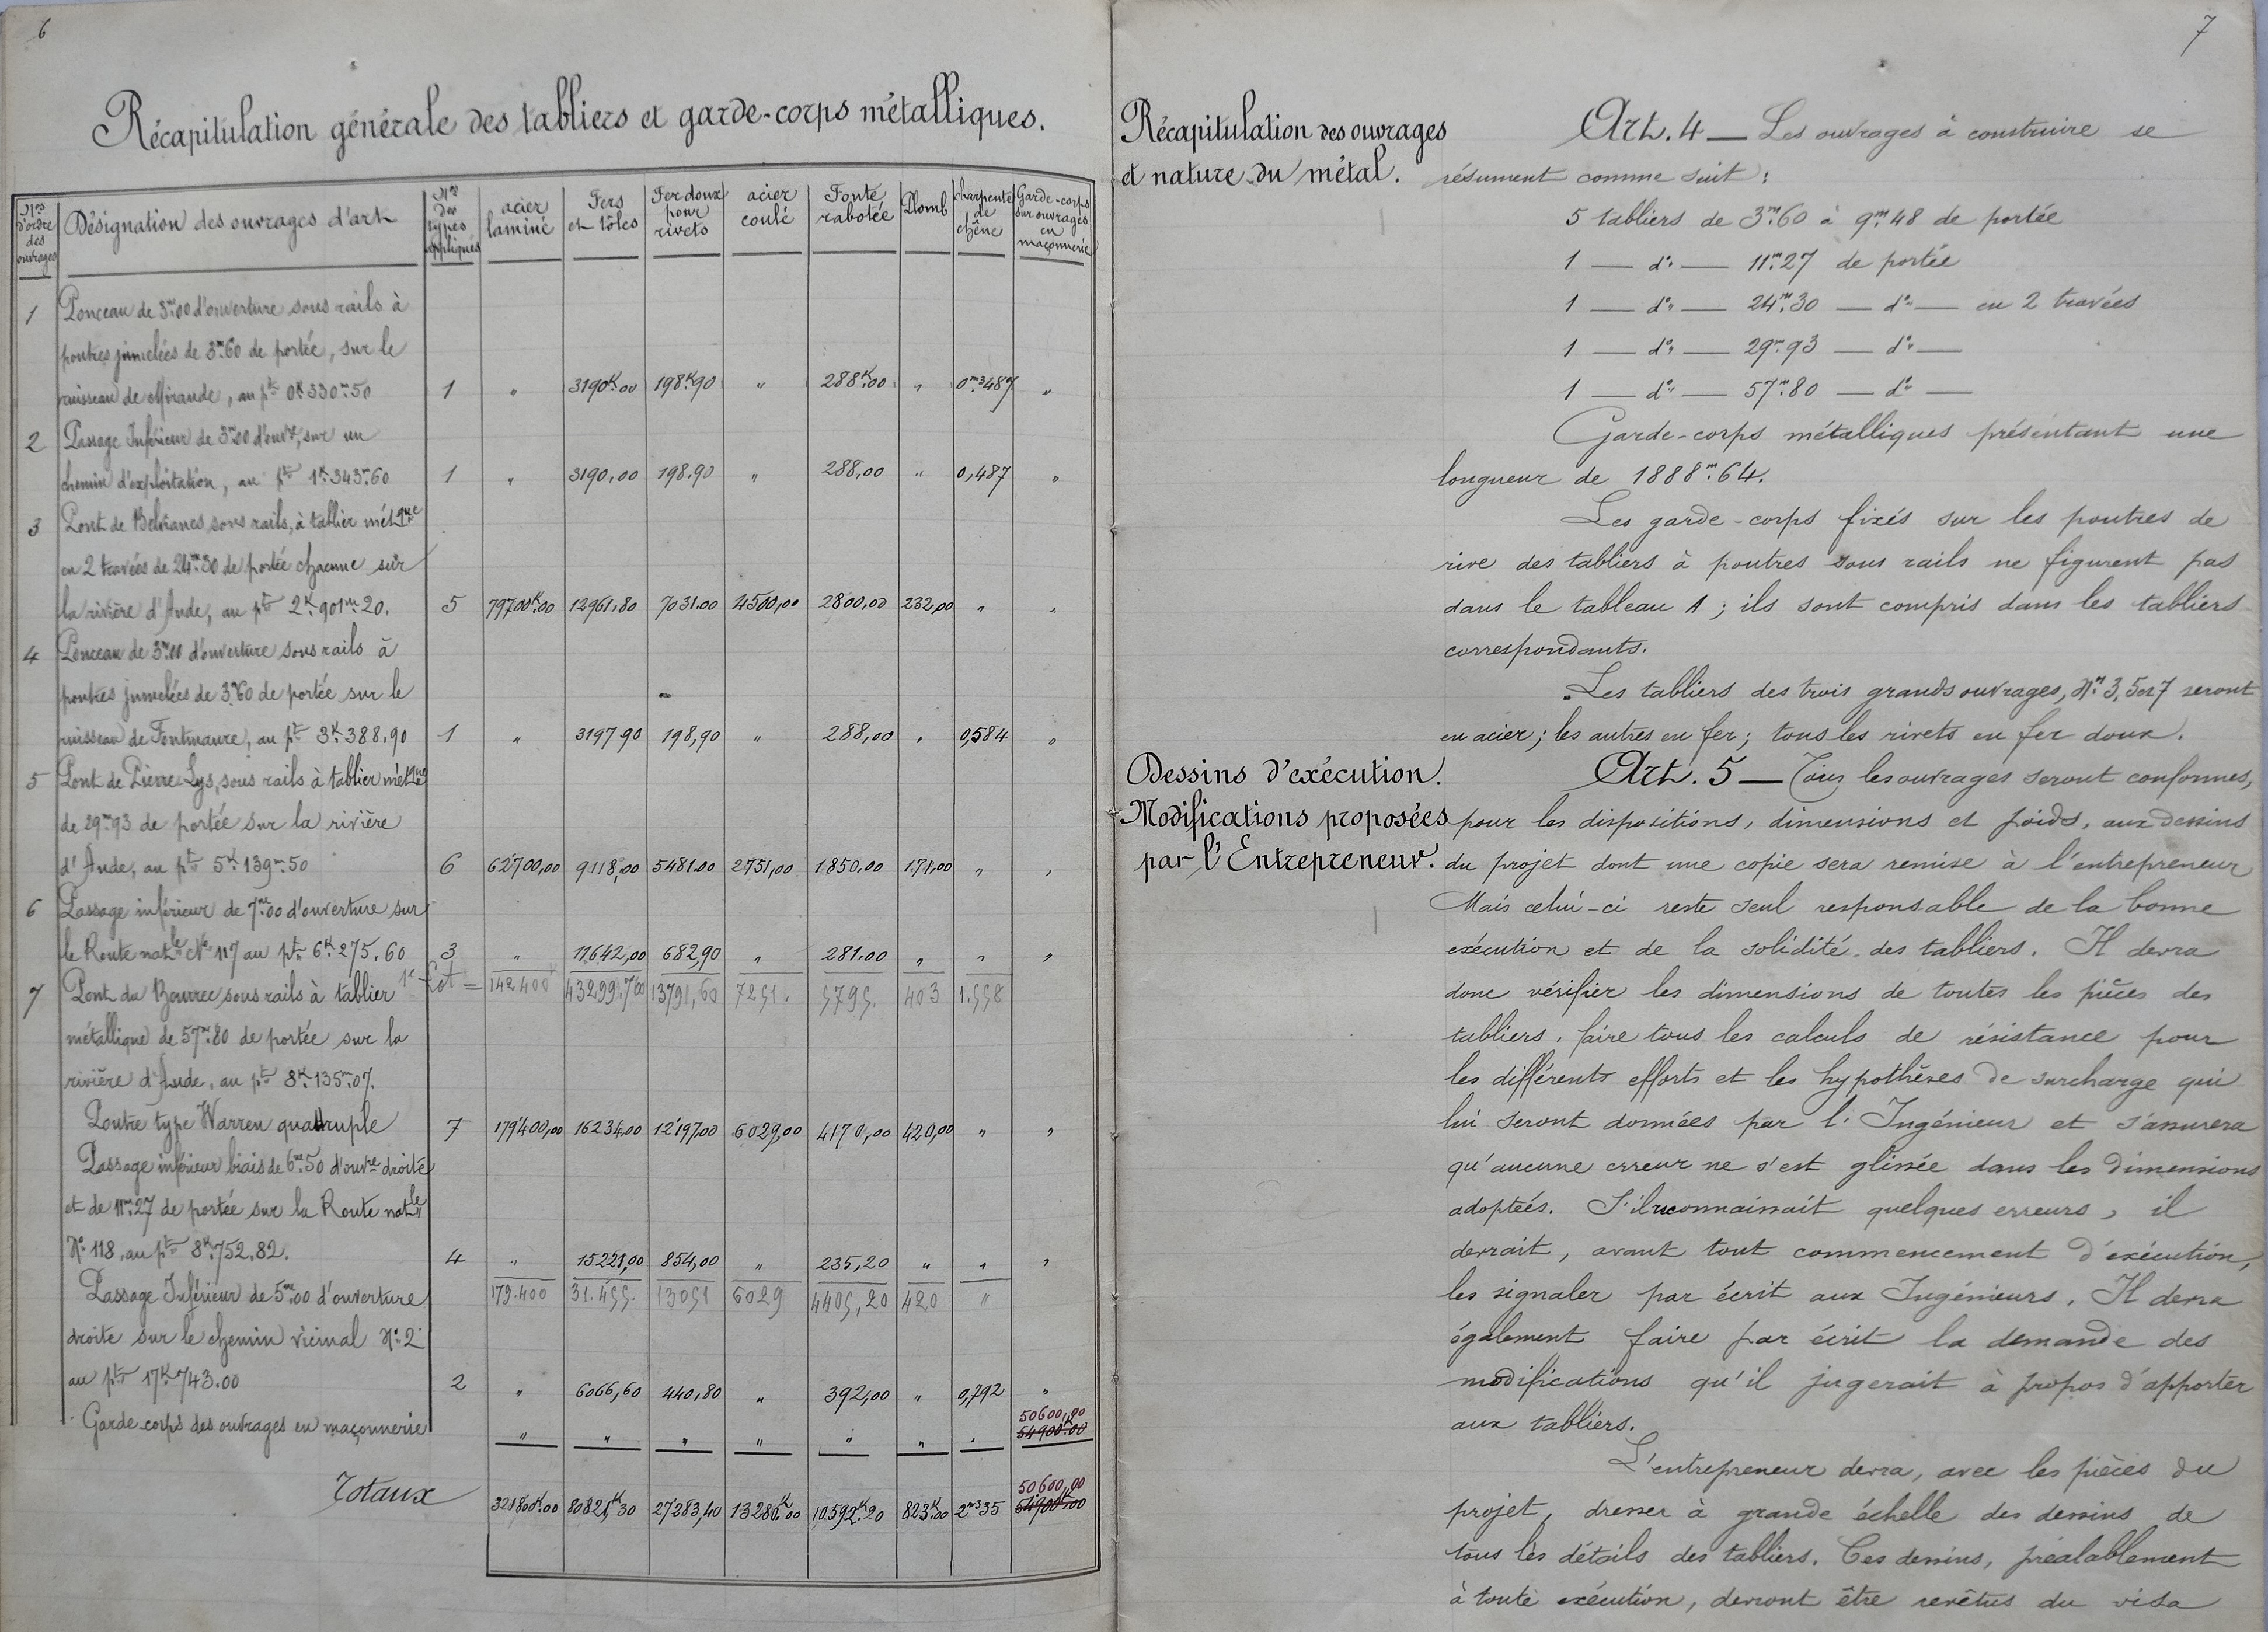 6
Récapitulation générale des tabliers et garde-corps métalliques.
Nos d'ordre des ouvrages | Désignation des ouvrages d'art | Nos des types appliqués | acier laminé | Fers et tôles | Fer doux pour rivets | acier coulé | Fonte rabotée | Plomb | charpente de chêne | Garde-corps sur ouvrages en maçonnerie
1 Ponceau de 3m,00 d'ouverture sous rails à
poutres jumelées de 3m,60 de portée, sur le
ruisseau de Mirande, au pt 0K 330m,50 1 " 3190K,00 198K,90 " 288K,00 " 0m3,487 "
2 Passage Inférieur de 3m,00 d'ouvre, sur un
chemin d'exploitation, au pt 1K 343m,60 1 " 3190,00 198,90 " 288,00 " 0,487 "
3 Pont de Belvianes sous rails, à tablier métque
en 2 travées de 24m,30 de portée chacune sur
la rivière d'Aude, au pt 2K 901m,20. 5 79700K,00 12961,80 7031,00 4500,00 2800,00 232,00 " "
4 Ponceau de 3m,00 d'ouverture sous rails à
poutres jumelées de 3m,60 de portée sur le
ruisseau de Fontmaure, au pt 3K 388,90 1 " 3197 90 198,90 " 288,00 " 0,584 "
5 Pont de Pierre-Lys, sous rails à tablier métque
de 29m,93 de portée sur la rivière
d'Aude, au pt 5K 139m,50 6 62700,00 9118,00 5481,00 2751,00 1850,00 171,00 " "
6 Passage inférieur de 7m,00 d'ouverture sur
le Route natle No 117 au pt 6K 275,60 3 " 11642,00 682,90 " 281,00 " " "
1er Lot = 142400 43299,700 13791,60 7251. 5795. 403 1.558
7 Pont du Bourrec sous rails à tablier
métallique de 57m,80 de portée sur la
rivière d'Aude, au pt 8K 135m,07.
Poutre type Warren quadruple 7 179400,00 16234,00 12197,00 6029,00 4170,00 420,00 " "
Passage inférieur biais de 6m,50 d'ouvre droite
et de 11m,27 de portée sur la Route natle
No 118, au pt 8K 752,82. 4 " 15221,00 854,00 " 235,20 " " "
179.400 31.455. 13051 6029 4405,20 420 "
Passage Inférieur de 5m,00 d'ouverture
droite sur le chemin vicinal No 2
au pt 17K 743.00 2 " 6066,60 440,80 " 392,00 " 0,792 "
50600,00
Garde-corps des ouvrages en maçonnerie " " " " " " " 54900K,00
50600,00
Totaux 321800K,00 80821K,30 27283,40 13280K,00 10592K,20 823K,00 2m3,35 54900K,00
7
Récapitulation des ouvrages
et nature du métal.
Art. 4 — Les ouvrages à construire se
résument comme suit :
5 tabliers de 3m,60 à 9m,48 de portée
1 — do — 11m,27 de portée
1 — do — 24m,30 — do — en 2 travées
1 — do — 29m,93 — do —
1 — do — 57m,80 — do —
Garde-corps métalliques présentant une
longueur de 1888m,64.
Les garde-corps fixés sur les poutres de
rive des tabliers à poutres sous rails ne figurent pas
dans le tableau A ; ils sont compris dans les tabliers
correspondants.
Les tabliers des trois grands ouvrages, Nos 3, 5 et 7 seront
en acier ; les autres en fer ; tous les rivets en fer doux.
Dessins d'exécution.
Modifications proposées
par l'Entrepreneur.
Art. 5 — Tous les ouvrages seront conformes,
pour les dispositions, dimensions et poids, aux dessins
du projet dont une copie sera remise à l'entrepreneur
Mais celui-ci reste seul responsable de la bonne
exécution et de la solidité des tabliers. Il devra
donc vérifier les dimensions de toutes les pièces des
tabliers, faire tous les calculs de résistance pour
les différents efforts et les hypothèses de surcharge qui
lui seront données par l'Ingénieur et s'assurera
qu'aucune erreur ne s'est glissée dans les dimensions
adoptées. S'il reconnaissait quelques erreurs, il
devrait, avant tout commencement d'exécution,
les signaler par écrit aux Ingénieurs. Il devra
également faire par écrit la demande des
modifications qu'il jugerait à propos d'apporter
aux tabliers.
L'entrepreneur devra, avec les pièces du
projet, dresser à grande échelle des dessins de
tous les détails des tabliers. Ces dessins, préalablement
à toute exécution, devront être revêtus du visa